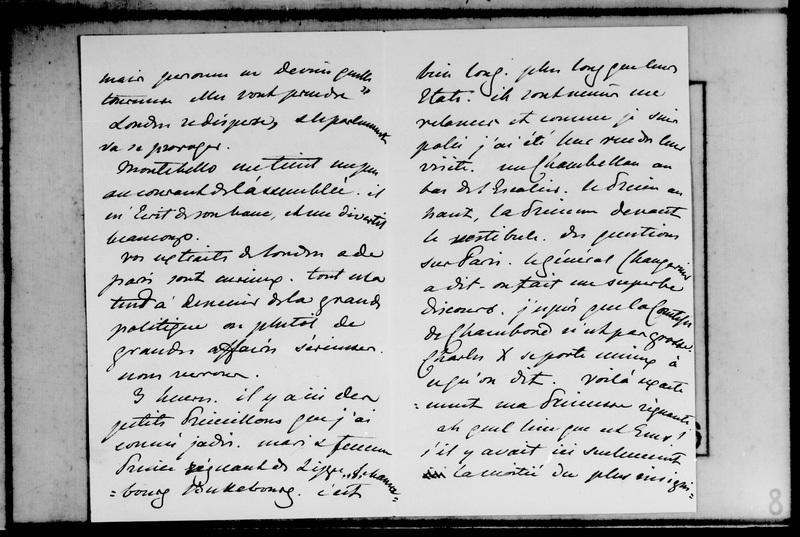 mais personne ne devine quelle
tournure elles vont prendre
Londres se disperse, & le parlement
va se proroger.
Montebello me tient un peu
au courant de l'assemblée. il
m'écrit de son banc, et me divertit
beaucoup.
vos extraits de Londres & de
paris sont curieux. tout cela
tend à devenir de la grande
politique ou plutot de
grandes affaires sérieuses.
nous verrons.
3 heures. il y a ici des
petits Princillons que j'ai
connus jadis. mari & femme
Prince régnant de Lippe, Schauen=
=bourg Buckebourg. c'est
bien long. plus long que leurs
Etats. ils sont venus me
relancer et comme je suis
polie j'ai été leur rendre leur
visite. un Chambellan au
bas de l'Escalier. le Prince au
haut, la Princesse devant
le vestibule. des questions
sur Paris. le général Changarnier
a dit-on fait un superbe
discours. j'espère que la Comtesse
de Chambord n'est pas grosse.
Charles X se porte mieux à
ce qu'on dit. Voilà exacte
=ment ma Princesse régnante
ah quel lieu que cet Ems!
s'il y avait ici seulement
la moitié du plus insigni=
8